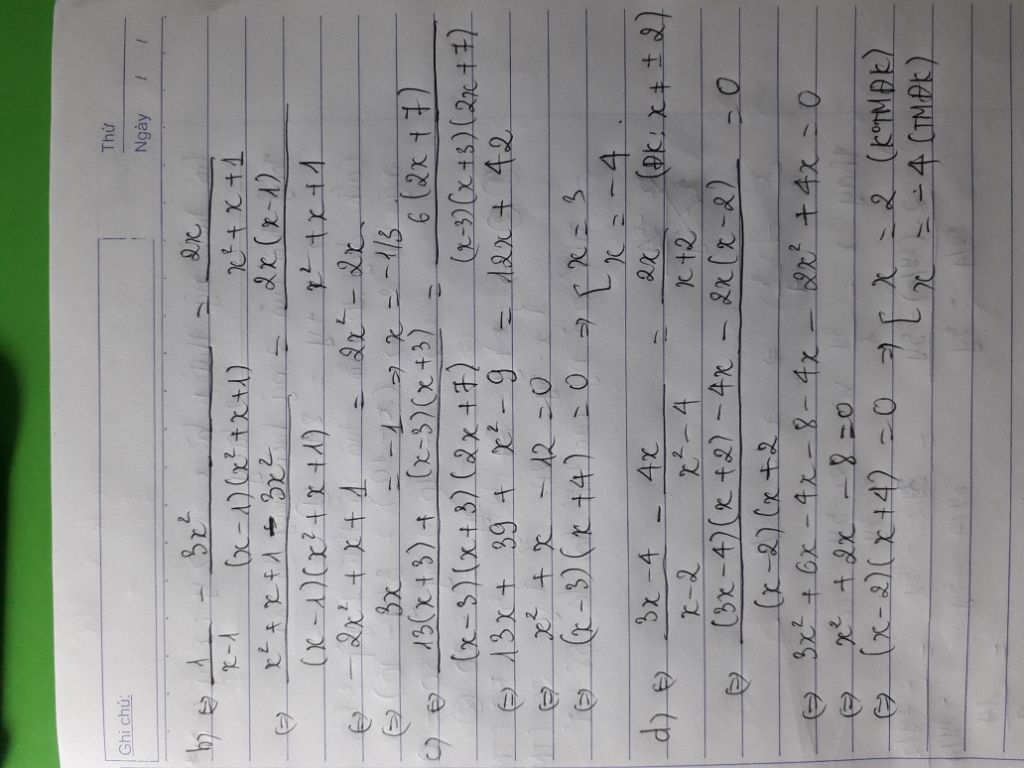 Ghi chú:
Thứ
Ngày / /
b) ⇔ 1/(x-1) - 3x²/((x-1)(x²+x+1)) = 2x/(x²+x+1)
⇔ (x²+x+1-3x²)/((x-1)(x²+x+1)) = 2x(x-1)/(x²+x+1)
⇔ -2x²+x+1 = 2x²-2x
⇔ 3x = -1 ⇒ x = -1/3
c) ⇔ (13(x+3) + (x-3)(x+3))/((x-3)(x+3)(2x+7)) = 6(2x+7)/((x-3)(x+3)(2x+7))
⇔ 13x + 39 + x² - 9 = 12x + 42
⇔ x² + x - 12 = 0
⇔ (x-3)(x+4) = 0 ⇒ [ x = 3
x = -4
d) ⇔ (3x-4)/(x-2) - 4x/(x²-4) = 2x/(x+2) (ĐK: x ≠ ±2)
⇔ ((3x-4)(x+2) - 4x - 2x(x-2))/((x-2)(x+2) = 0
⇔ 3x² + 6x - 4x - 8 - 4x - 2x² + 4x = 0
⇔ x² + 2x - 8 = 0
⇔ (x-2)(x+4) = 0 ⇒ [ x = 2 (KoTMĐK)
x = -4 (TMĐK)